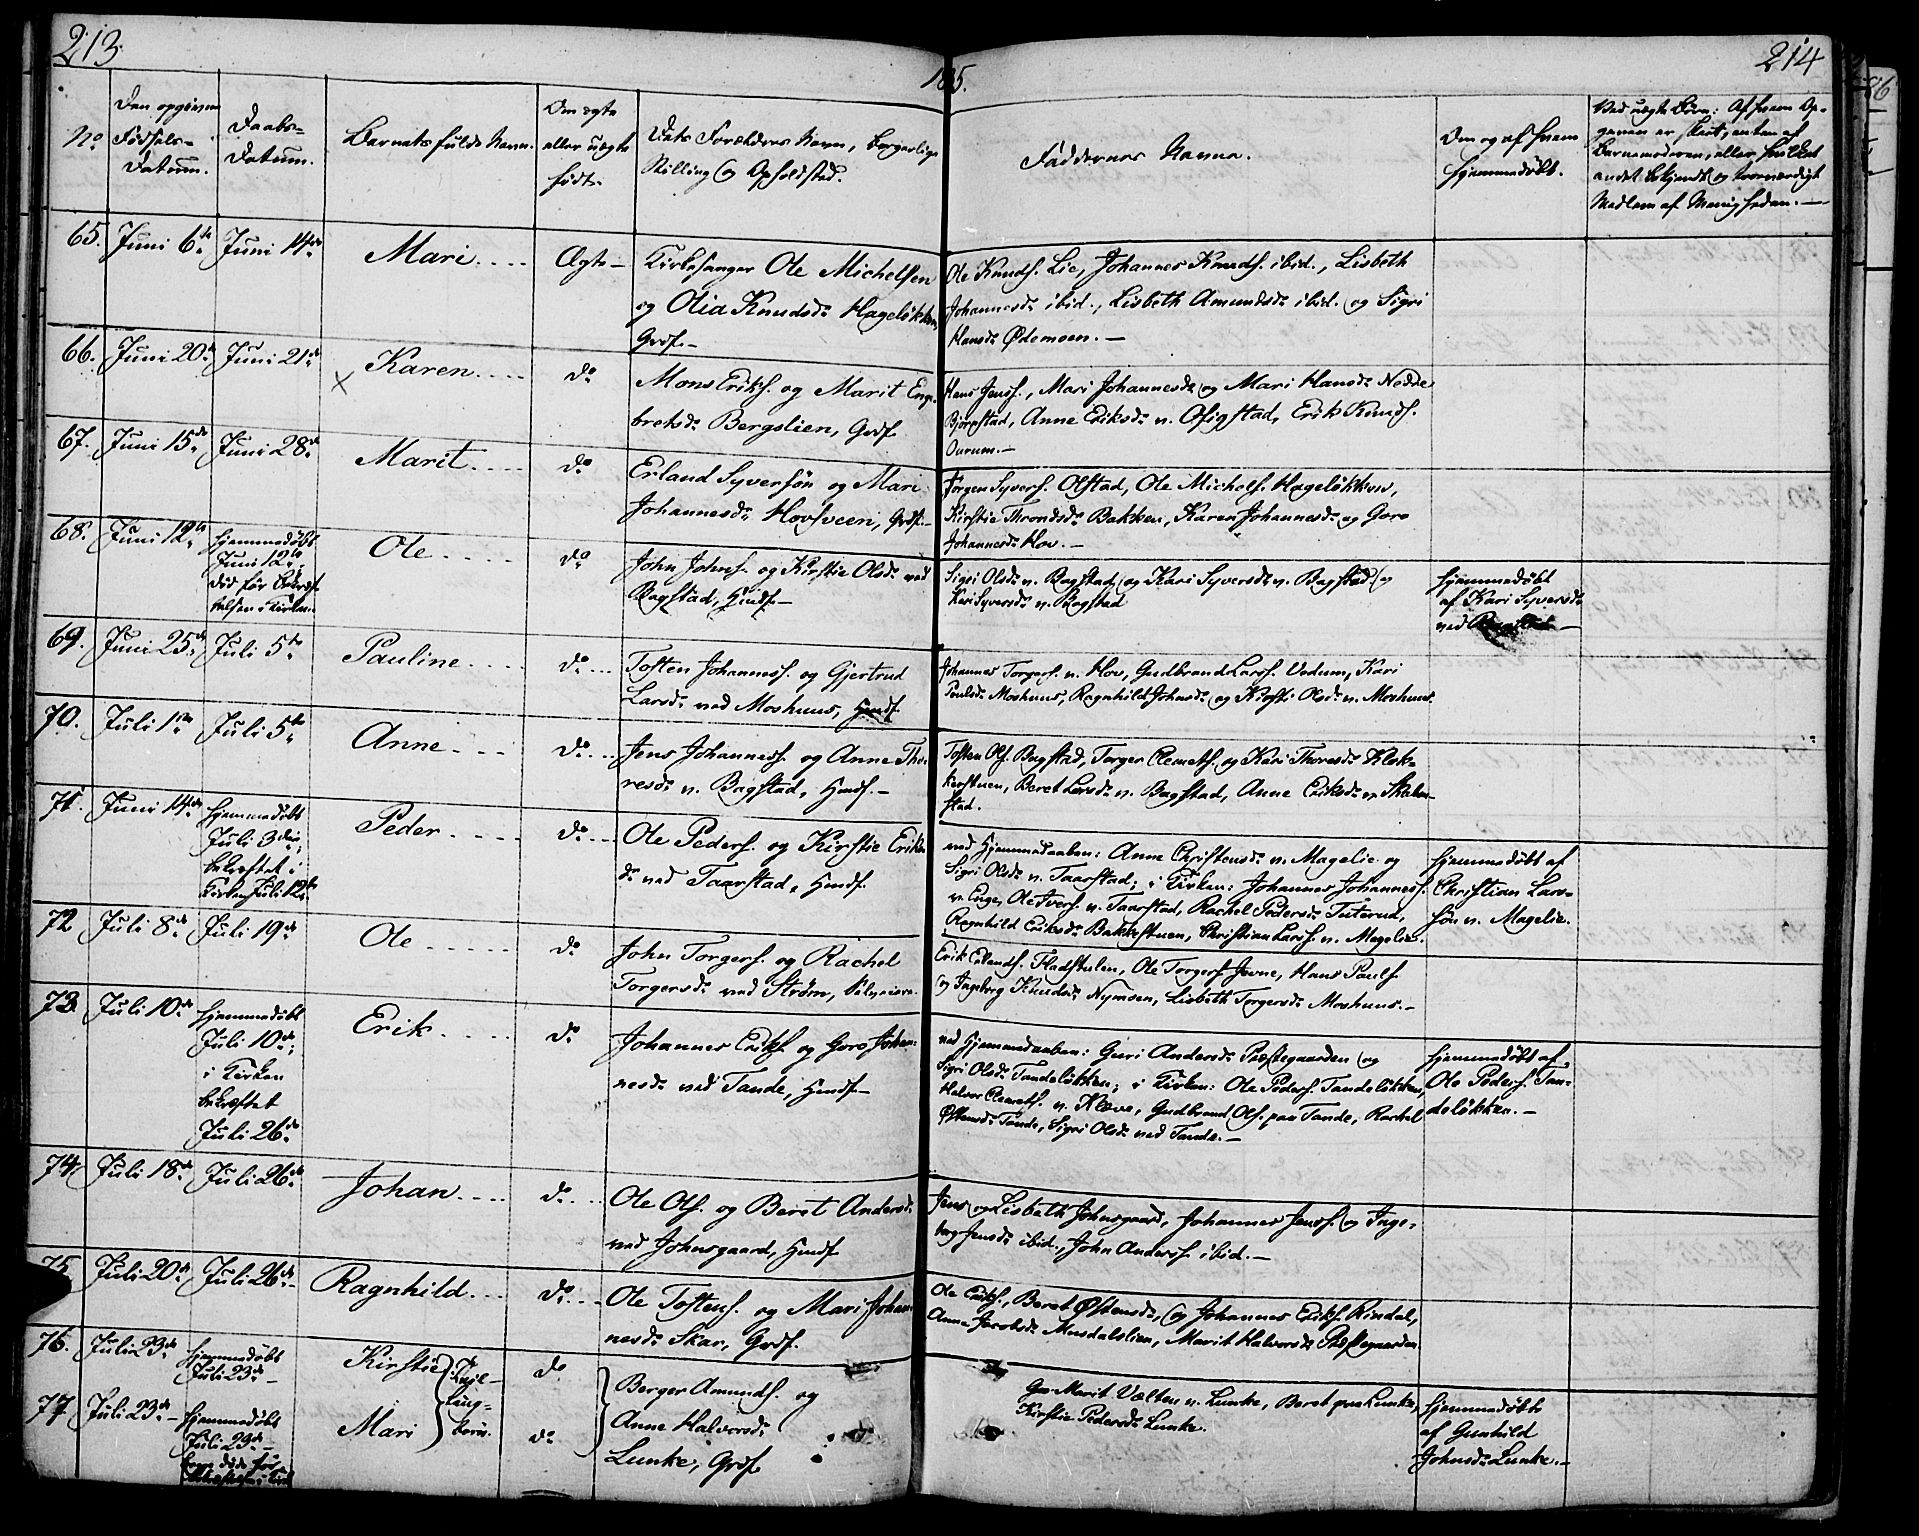 213.
185.
214
No
Den opgivne
Fødsels-
Datum.
Daabs-
Datum.
Barnets fulde Navn.
Om ægte
eller uægte
født.
Dets Forældres Navn, borgerlige
Stilling og Opholdsted.
Faddernes Navne.
Om og af hvem
hjemmedøbt.
Ved uægte Børn: Af hvem Op-
gaven er skeet, enten af
Barnemoderen, eller hvilket
andet bekjendt og troværdigt
Medlem af Menigheden.—
65. Juni 6te Juni 14de Mari.... Ægte—
Kirkesanger Ole Michelsen
og Olia Knudsdr Hageløkken,
Grdf.—
Ole Knudsf. Lie, Johannes Knudsf. ibid., Lisbeth
Johannesdr ibid., Lisbeth Amundsdr ibid. og Sigri
Hansdr Ødemoen.—
66. Juni 20de Juni 21de × Karen.... do
Mons Eriksf. og Marit Eng-
bretsdr Bergslien, Grdf.
Hans Jensf., Mari Johannesdr og Mari Hansdr Nedre
Bjørgstad, Anne Eriksdr v. Ofigstad, Erik Knudsf.
67. Juni 15de Juni 28de Marit.... do
Erland Syversøn og Mari
Johannesdr Hovsveen, Grdf.—
Jørgen Syversf. Olstad, Ole Michelsf. Hageløkken,
Kirstie Throndsdr Bakken, Karen Johannesdr og Goro
Johannesdr Hov.—
68. Juni 12te hjemmedøbt
Juni 12te,
død før Bekræf-
telsen i Kirken.
Ole.... do
John Johnsf. og Kirstie Olsdr ved
Bagstad, Hmdf.—
Sigri Olsdr v. Bagstad og Kari Syversdr v. Bagstad og
Kari Syversdr v. Bagstad
hjemmedøbt
af Kari Syversdr
ved Bagstad—
69. Juni 25de Juli 5te Pauline.... do...
Tosten Johannesf. og Gjertrud
Larsdr ved Moshuus, Hmdf.
Johannes Torgersf. v. Hov, Gudbrand Larsf. Vedum, Kari
Poulsdr Moshuus, Ragnhild Johnsdr og Kirsti Olsdr v. Moshuus.
70. Juli 1ste Juli 5te Anne.... do...
Jens Johannesf. og Anne Tho-
resdr v. Bagstad, Hmdf.—
Tosten Olsf. Bagstad, Torger Clemetsf. og Kari Thoresdr Klok-
kerstuen, Beret Larsdr v. Bagstad, Anne Eriksdr v. Skaden-
stad.
71. Juni 14de hjemmedøbt
Juli 3die;
bekræftet i
Kirken Juli 12te
Peder.... do...
Ole Pedersf. og Kirstie Eriks-
dr ved Taarstad, Hmdf.
ved Hjemmedaaben: Anne Christensdr v. Magelie og
Sigri Olsdr v. Taarstad; i Kirken: Johannes Johannesf.
v. Enge, Ole Iversf. v. Taarstad, Rachel Pedersdr Tuterud,
Ragnhild Eriksdr Bakkestuen, Christian Larsf. v. Magelie.
hjemmedøbt af
Christian Lars-
søn v. Magelie.
72 Juli 8de Juli 19de Ole..... do
John Torgersf. og Rachel
Torgersdr ved Strøm, Selveiere.
Erik Erlandsf. Fladstulen, Ole Torgersf. Jevne, Hans Paulsf.
og Ingeborg Knudsdr Nymoen, Lisbeth Torgersdr Moshuus.—
73 Juli 10de hjemmedøbt
Juli 10de;
i Kirken
bekræftet
Juli 26de
Erik.... do
Johannes Eriksf. og Goro Johan-
nesdr ved Tande, Hmdf.—
ved Hjemmedaaben: Guri Andersdr Præstegaarden og
Sigri Olsdr Tandeløkken; i Kirken: Ole Pedersf. Tandeløkken,
Halvor Clemetsf. v. Kleve, Gudbrand Olsf. paa Tande, Rachel
Østensdr Tande, Sigri Olsdr ved Tande.—
hjemmedøbt af
Ole Pedersf. Tan-
deløkken.—
74. Juli 18de Juli 26de Johan.... do...
Ole Olsf. og Beret Andersdr
ved Johnsgaard, Hmdf.
Jens og Lisbeth Johnsgaard, Johannes Jensf. og Inge-
borg Jensdr ibid., John Andersf. ibid.—
75. Juli 20de Juli 26de Ragnhild... do...
Ole Tostensf. og Mari Johan-
nesdr Skar, Grdf.
Ole Eriksf., Beret Østensdr, og Johannes Eriksf. Rindal,
Anne Jacobsdr Musdalslien, Marit Halvorsdr Præstegaarden
76. Juli 23de hjemmedøbt
Juli 23de—
Kirstie do
77 Juli 23de— hjemmedøbt
Juli 23de—
Mari do
Tvil-
ling-
børn.
Berger Amundsf. og
Anne Halvorsdr
Lunke, Grdf.
Marit Velten v. Lunke, Beret paa Lunke,
Kirstie Pedersdr Lunke.
hjemmedøbte
af Gunhild
Johnsdr Lunke.—
86